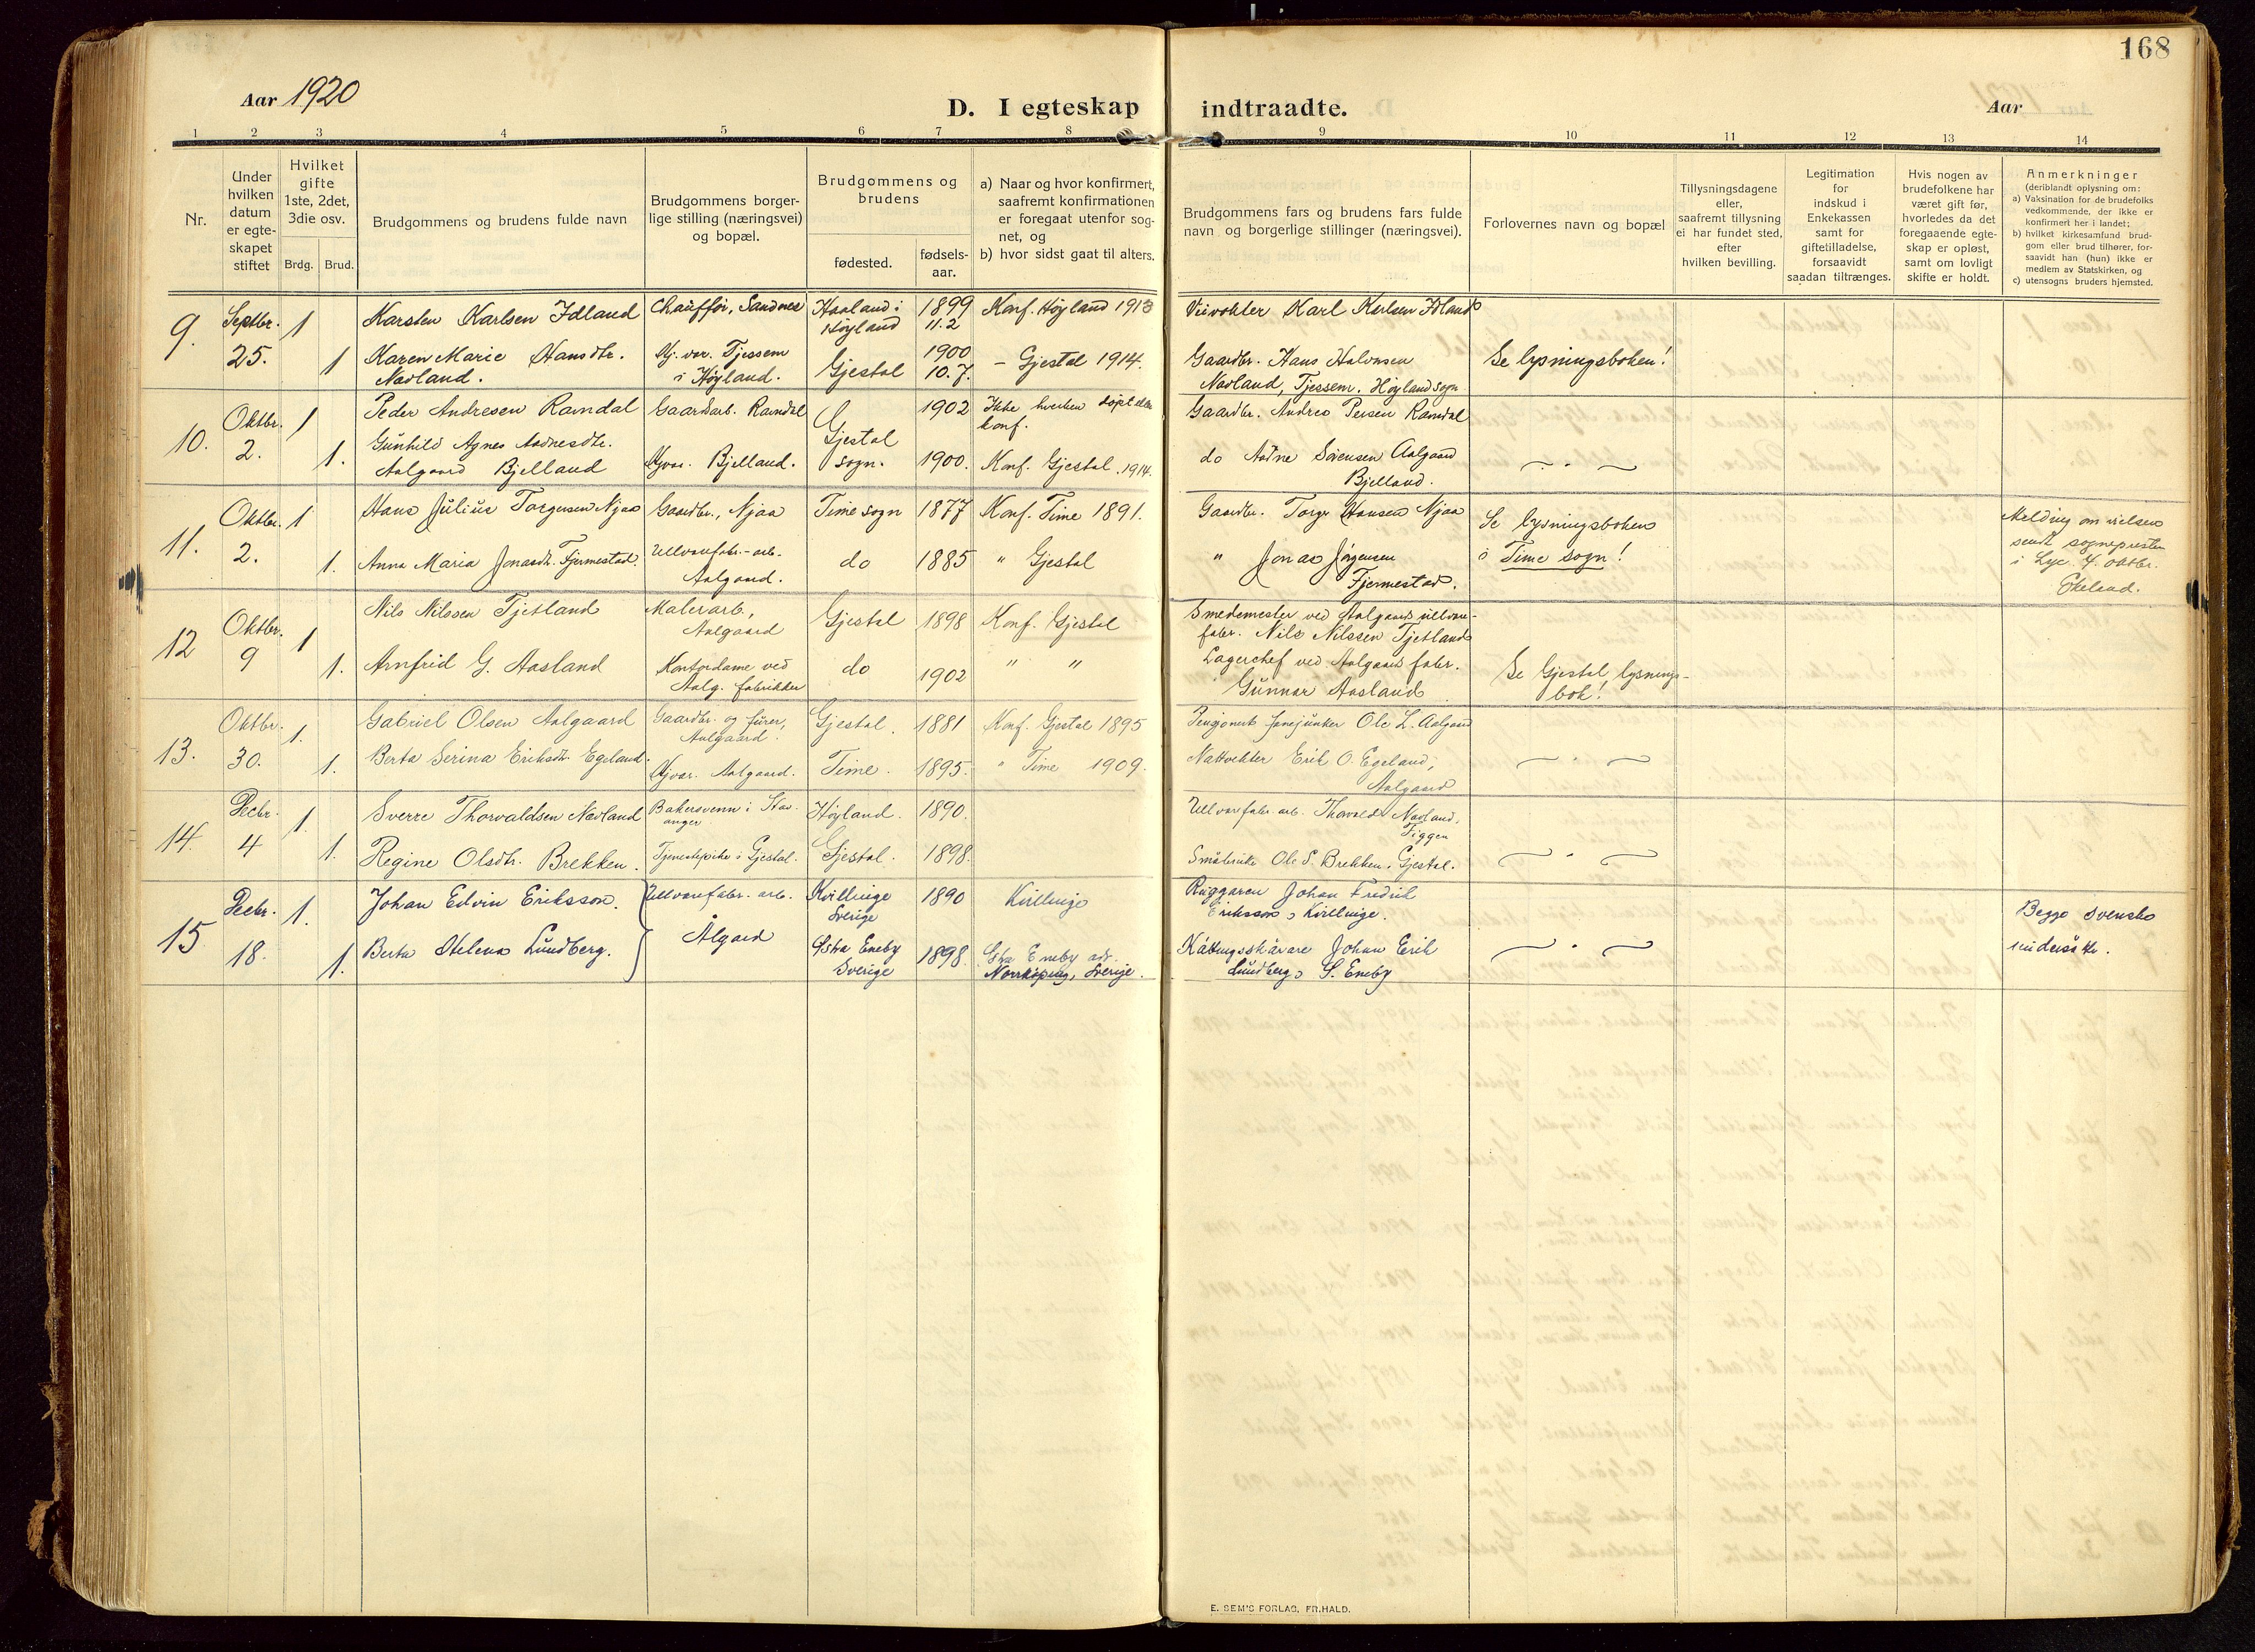 168
Aar 1920
D. I egteskap indtraadte.
Aar
1 2 3 4 5 6 7 8 9 10 11 12 13 14
Nr.
Under
hvilken
datum
er egte-
skapet
stiftet
Hvilket
gifte
1ste, 2det,
3die osv.
Brdg. Brud.
Brudgommens og brudens fulde navn
Brudgommens borger-
lige stilling (næringsvei)
og bopæl.
Brudgommens og
brudens
fødested.
fødsels-
aar.
a) Naar og hvor konfirmert,
saafremt konfirmationen
er foregaat utenfor sog-
net, og
b) hvor sidst gaat til alters.
Brudgommens fars og brudens fars fulde
navn og borgerlige stillinger (næringsvei).
Forlovernes navn og bopæl
Tillysningsdagene
eller,
saafremt tillysning
ei har fundet sted,
efter
hvilken bevilling.
Legitimation
for
indskud i
Enkekassen
samt for
giftetilladelse,
forsaavidt
saadan tiltrænges.
Hvis nogen av
brudefolkene har
været gift før,
hvorledes da det
foregaaende egte-
skap er opløst,
samt om lovligt
skifte er holdt.
Anmerkninger
(deriblandt oplysning om:
a) Vaksination for de brudefolks
vedkommende, der ikke er
konfirmert her i landet;
b) hvilket kirkesamfund brud-
gom eller brud tilhører, for-
saavidt han (hun) ikke er
medlem av Statskirken, og
c) utensogns bruders hjemsted.
9. Septbr. 25. 1
Karsten Karlsen Idland
Chauffør, Sandnes
Haaland i
Høyland
1899
11.2
Konf. Høyland 1913
Karl Karlsen Idland
1
Karen Marie Hansdtr.
Nadland.
Hj. vær. Tjessem
i Høyland.
Gjestal
1900
10.7.
– Gjestal 1914.
Gaardbr. Hans Halvorsen
Nadland, Tjessem, Høyland sogn
Se lysningsboken!
10. Oktbr. 2. 1
Peder Andresen Ramdal
Gaardarb. Ramdal
Gjestal
sogn.
1902
Ikke hverken døpt eller
konf.
Gaardbr. Andreas Persen Ramdal
1.
Gunhild Agnes Aadnesdtr.
Aalgaard Bjelland
Hjvær. Bjelland.
1900.
Konf. Gjestal. 1914.
do Aadne Sørensen Aalgaard
Bjelland.
— " —
11. Oktbr. 2. 1
Hans Julius Torgersen Njaa
Gaardbr., Njaa
Time sogn
1877
Konf. Time 1891.
Gaardbr. Torger Hansen Njaa
Se lysningsboken
i Time sogn!
Melding om vielsen
sendt sognepresten
i Lye 4. oktbr.
1.
Anna Maria Jonasdtr. Fjermestad.
Uldvarefabr.-arb.
Aalgaard.
do
1885
" Gjestal
" Jonas Jørgensen
Fjermestad.
12 Oktbr. 9 1
Nils Nilssen Tjetland
Malerarb.,
Aalgaard
Gjestal
1898
Konf. Gjestal
Smedemester ved Aalgaards uldvare-
fabr. Nils Nilssen Tjetland
1.
Arnfrid G. Aasland
Kontordame ved
Aalg. fabrikker
do
1902
" "
Lagerchef ved Aalgaards fabr.
Gunnar Aasland
Se Gjestal lysnings-
bok!
13. Oktbr. 30. 1.
Gabriel Olsen Aalgaard
Gaardbr. og furer,
Aalgaard.
Gjestal.
1881
Konf. Gjestal 1895
Pensjonert fanejunker Ole L. Aalgaard
1.
Berta Serina Eriksdtr. Egeland.
Hjvær. Aalgaard.
Time.
1895.
" Time 1909.
Nattvekter Erik O. Egeland,
Aalgaard
— " —
14. Decbr. 4 1.
Sverre Thorvaldsen Nadland
Bakersvenn i Stav-
anger
Høyland.
1890.
Ullvarefabr. arb. Thorvald Nadland,
Figgen
1.
Regine Olsdtr. Brekken.
Tjenestepike i Gjestal.
Gjestal.
1898.
Småbruker Ole S. Brekken, Gjestal.
— " —
15 Decbr. 18. 1.
Johan Edvin Eriksson.
Ullvarefabr. arb.
Ålgård
Kvillinge
Sverige
1890
Kvillinge
Johan Fredrik
Eriksson, Kvillinge.
Begge svenske
undersåtter.
1.
Berta Helena Lundberg.
Östra Eneby
Sverige
1898.
Östra Eneby
Norrköping, Sverige.
Johan Erik
Lundberg, Ö. Eneby
— " —
E. SEM'S FORLAG, FR.HALD.